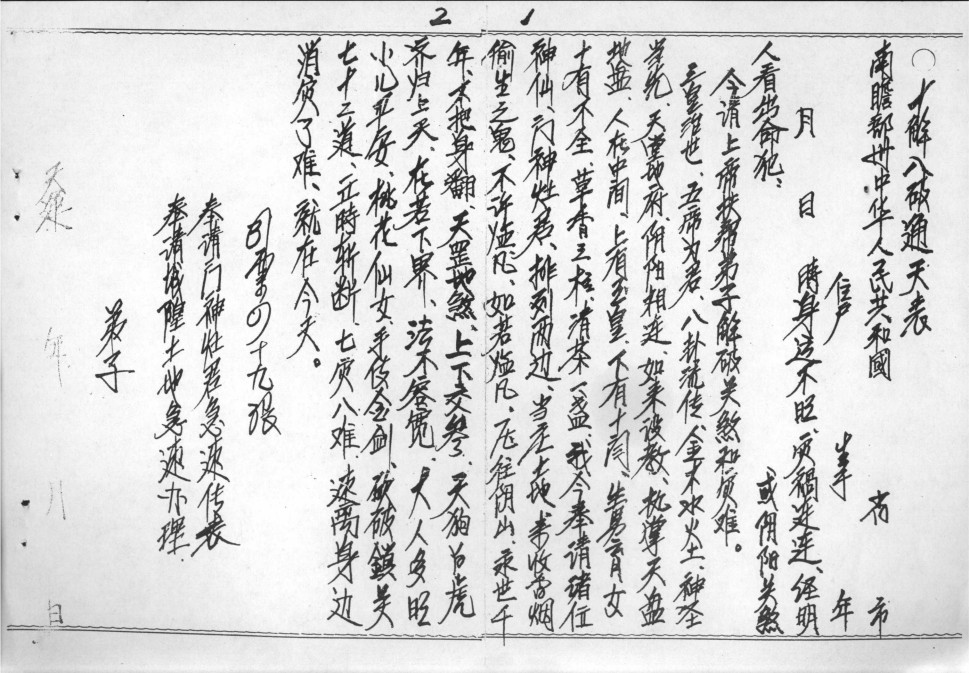 2 1
十解八破通天表
南瞻部卅中华人民共和國 省 市
住户 生年 年
月 日 時身造不旺、灾禍延连、经明
人看出命犯、 或阴阳关煞
今请上帝扶帮弟子解破关煞和灾难。
三皇治世、五帝为君、八卦流传、金木水火土、神圣
当先、天堂地府、阴阳相连、如来设教、执掌天盘
地盘、人在中间、上有玉皇、下有十阎、生男育女
十有不全、草香三柱、清茶一盏、我今奉请诸位
神仙、门神灶君、排列两边、当庄土地来收香烟
偷生之鬼、不许临凡、如若临凡、压往阴山、永世千
年、木把身翻、天罡地煞、上下交参、天狗白虎
齐归上天、在若下界、法不容宽、大人多旺
小儿平安、桃花仙女、手使金剑、砍破鎖关
七十二道、立時斩断、七灾八难、速离身边
消灾了难、就在今天。
四十九张
奉请门神灶君急速传表
奉请城隍土地急速办理
弟子
天 年 月 日